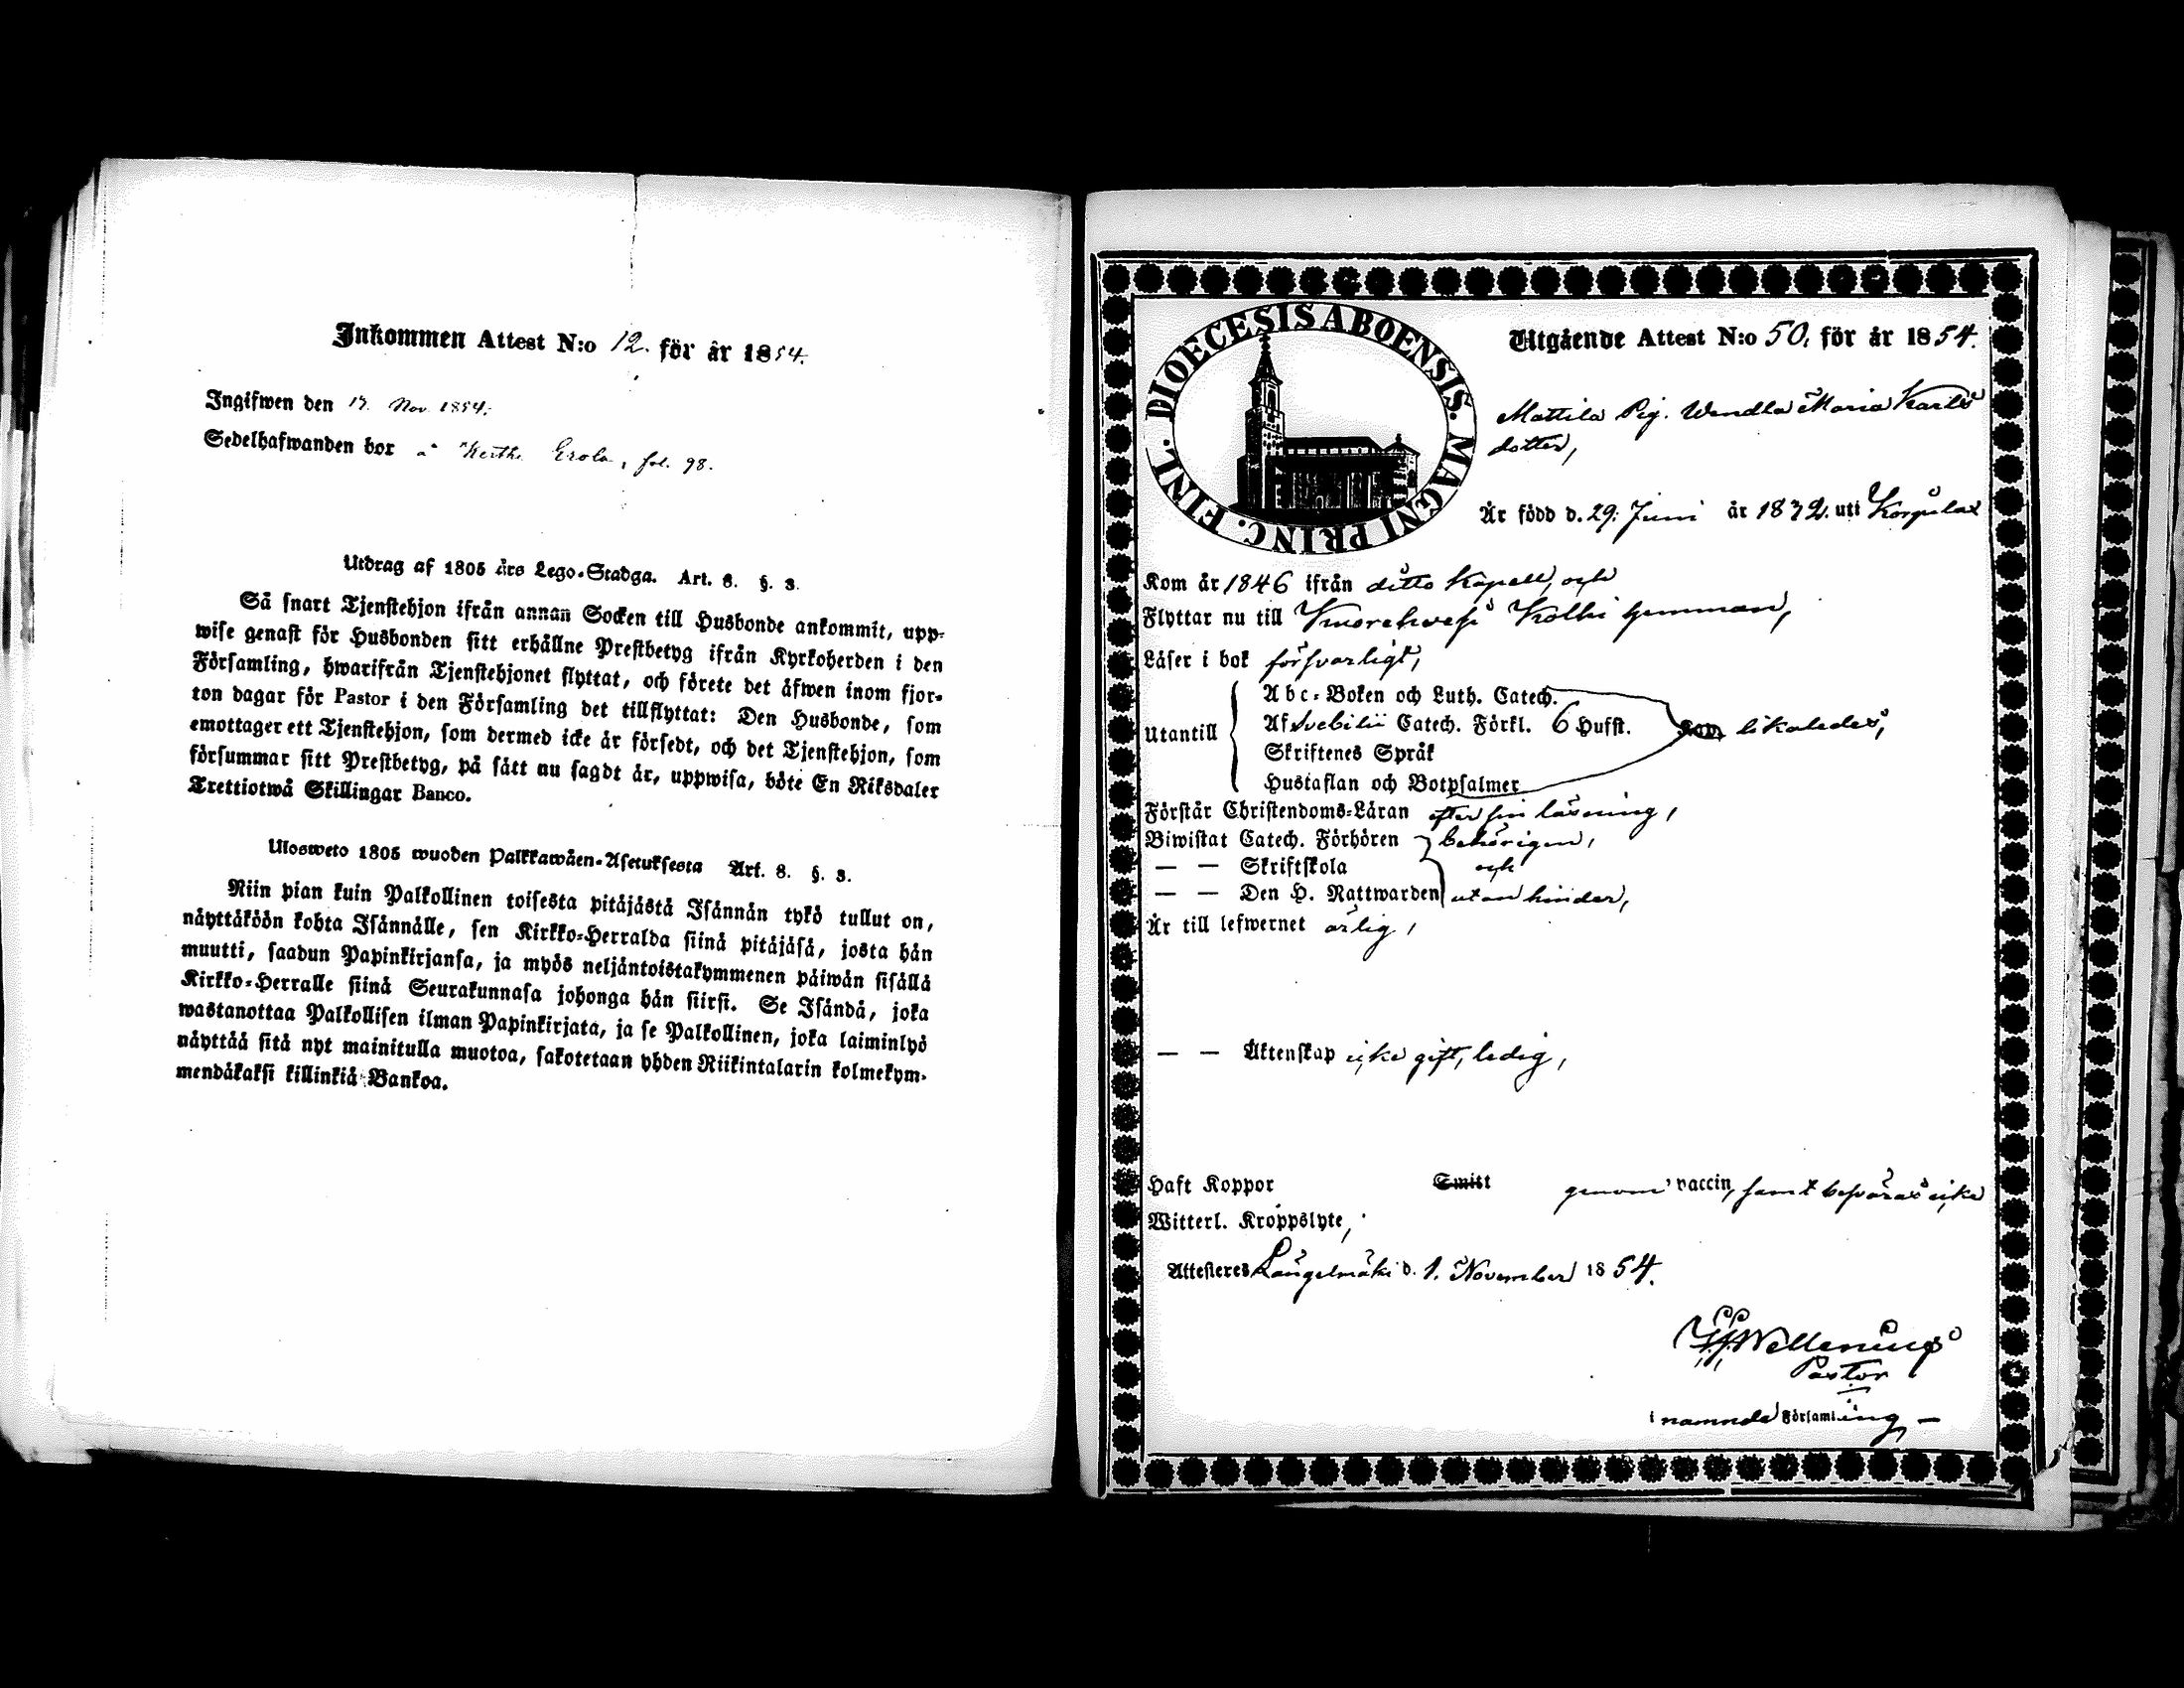 Inkommen Attest N:o 12. för år 1854.
Ingifwen den 17. Nov. 1854.
Sedelhafwanden bor å Kerthe Erola, fol. 98.
Utdrag af 1805 års Lego-Stadga. Art. 8. §. 3.
Så snart Tjenstehjon ifrån annan Socken till Husbonde ankommit, upp-
wise genast för Husbonden sitt erhållne Prestbetyg ifrån Kyrkoherden i den
Församling, hwarifrån Tjenstehjonet flyttat, och förete det äfwen inom fjor-
ton dagar för Pastor i den Församling det tillflyttat: Den Husbonde, som
emottager ett Tjenstehjon, som dermed icke är försedt, och det Tjenstehjon, som
försummar sitt Prestbetyg, på sätt nu sagdt är, uppwisa, böte En Riksdaler
Trettiotwå Skillingar Banco.
Ulosweto 1805 wuoden Palkkawäen-Asetuksesta Art. 8. §. 3.
Niin pian kuin Palkollinen toisesta pitäjästä Isännän tykö tullut on,
näyttäköön kohta Isännälle, sen Kirkko-Herralda siinä pitäjäsä, josta hän
muutti, saadun Papinkirjansa, ja myös neljäntoistakymmenen päiwän sisällä
Kirkko-Herralle siinä Seurakunnasa johonga hän siirsi. Se Isändä, joka
wastanottaa Palkollisen ilman Papinkirjata, ja se Palkollinen, joka laiminlyö
näyttää sitä nyt mainitulla muotoa, sakotetaan yhden Riikintalarin kolmekym-
mendäkaksi killinkiä Bankoa.
DIOECESIS ABOENSIS. MAGNI PRINC. FINL.
Utgående Attest N:o 50. för år 1854.
Mattila Pig. Wendla Maria Karls
dotter,
Är född d. 29. Juni år 1832. uti Korpulax
Kom år 1846 ifrån ditto Kapell, och
Flyttar nu till Kuorehvesi Kolhi hemman,
Läser i bok försvarligt,
Utantill
Abc-Boken och Luth. Catech.
Af Svebilii Catech. Förkl. 6 Hufst. likaledes,
Skriftenes Språk
Hustaflan och Botpsalmer
Förstår Christendoms-Läran efter sin läsning,
Biwistat Catech. Förhören behörigen,
— — Skriftskola och
— — Den H. Nattwarden utan hinder,
Är till lefwernet ärlig,
— — Äktenskap icke gift, ledig,
Haft Koppor Smitt genom vaccin, samt besväras icke
Witterl. Kroppslyte,
Attesteres Längelmäki d. 1. November 1854.
Wellenius
Pastor
i namnde Församling —